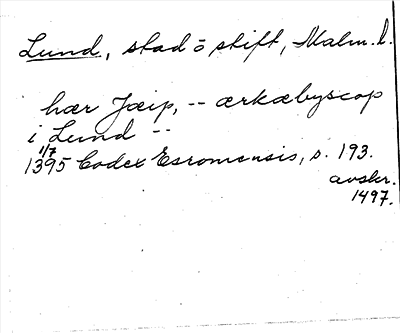 Lund, stad o stift, Malm. l.
hær Jæip, -- ærkæbyscop
i Lund --
1/7
1395 Codex Esromensis, s. 193.
avskr.
1497.